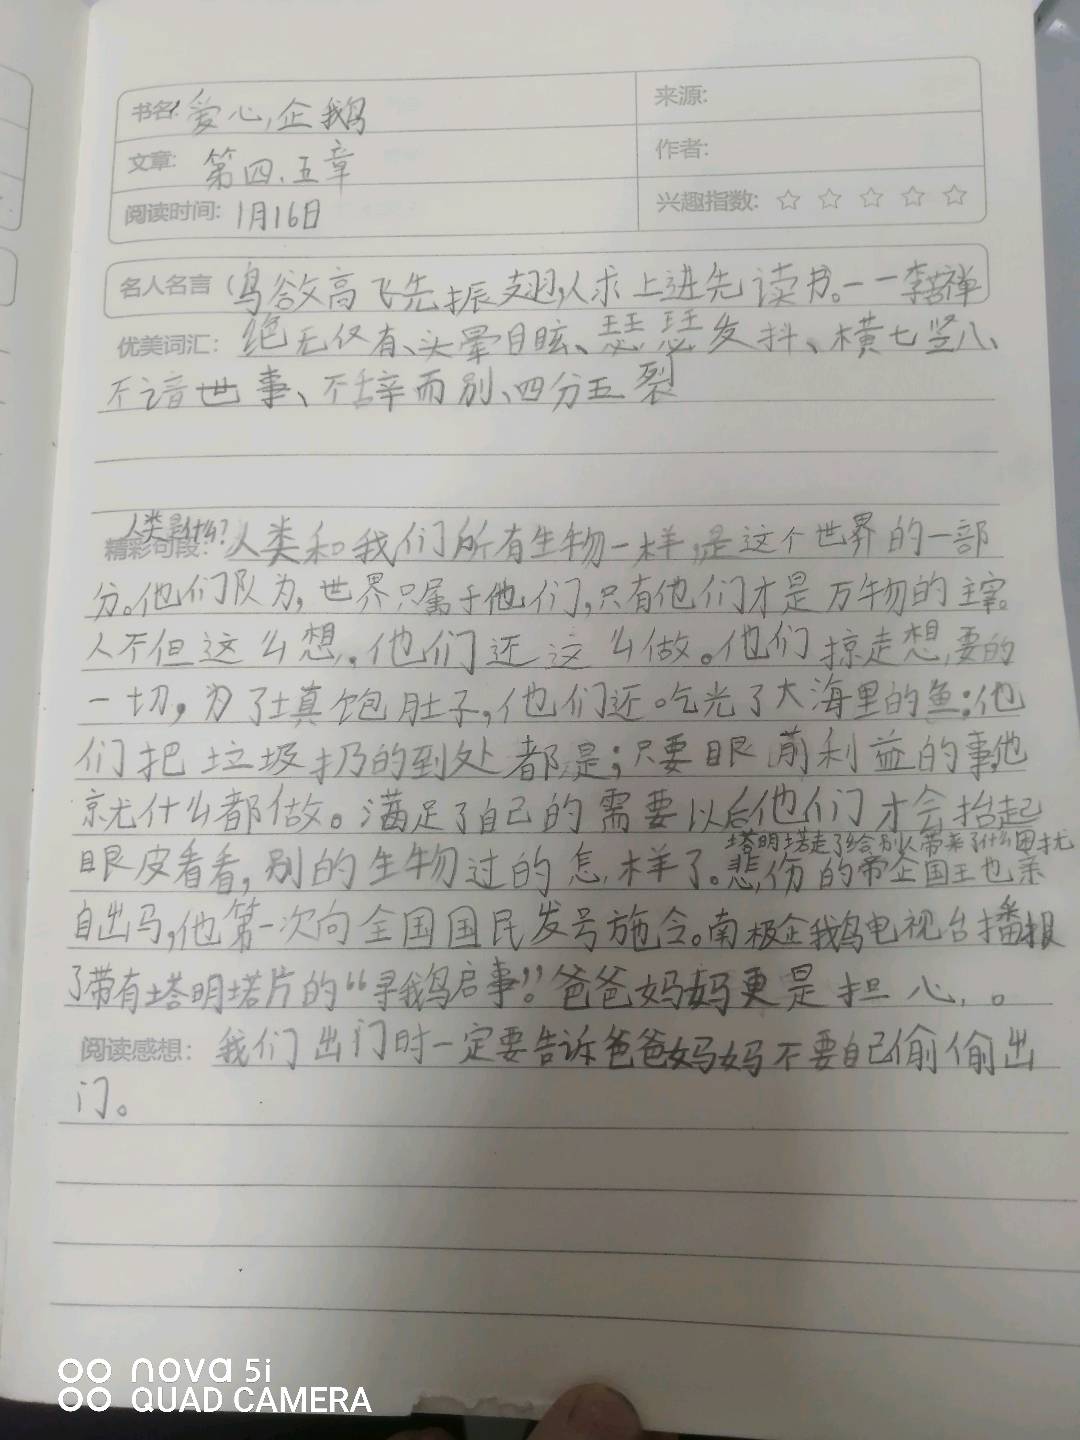 书名: 爱心企鹅
来源:
文章: 第四、五章
作者:
阅读时间: 1月16日
兴趣指数: ☆ ☆ ☆ ☆ ☆
名人名言 (鸟欲高飞先振翅,人求上进先读书。——李苦禅
优美词汇: 绝无仅有、头晕目眩、瑟瑟发抖、横七竖八、
不谙世事、不辞而别、四分五裂
人类是什么?
精彩句段: 人类和我们所有生物一样,是这个世界的一部
分。他们队为,世界只属于他们,只有他们才是万物的主宰。
人不但这么想,他们还这么做。他们掠走想要的
一切,为了填饱肚子,他们还吃光了大海里的鱼;他
们把垃圾扔的到处都是;只要眼前利益的事,他
就什么都做。满足了自己的需要以后他们才会抬起
眼皮看看,别的生物过的怎样了。悲伤的帝企国王也亲
塔明塔走了给别人带来了什么困扰
自出马,他第一次向全国国民发号施令。南极企鹅电视台播报
了带有塔明塔片的“寻鹅启事”。爸爸妈妈更是担心。
阅读感想: 我们出门时一定要告诉爸爸妈妈不要自己偷偷出
门。
nova 5i
QUAD CAMERA